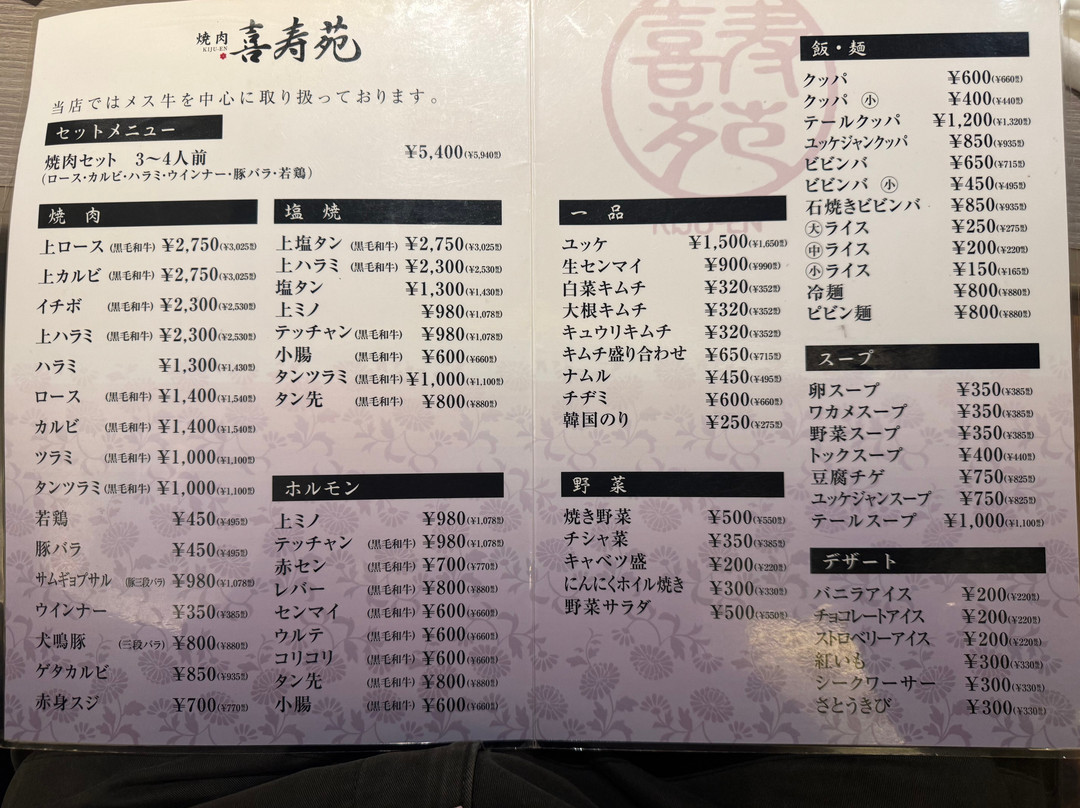 焼肉 喜寿苑
KIJU-EN
当店ではメス牛を中心に取り扱っております。
セットメニュー
焼肉セット 3〜4人前 ¥5,400(¥5,940税込)
(ロース・カルビ・ハラミ・ウインナー・豚バラ・若鶏)
焼肉
上ロース (黒毛和牛) ¥2,750(¥3,025税込)
上カルビ (黒毛和牛) ¥2,750(¥3,025税込)
イチボ (黒毛和牛) ¥2,300(¥2,530税込)
上ハラミ (黒毛和牛) ¥2,300(¥2,530税込)
ハラミ ¥1,300(¥1,430税込)
ロース (黒毛和牛) ¥1,400(¥1,540税込)
カルビ (黒毛和牛) ¥1,400(¥1,540税込)
ツラミ (黒毛和牛) ¥1,000(¥1,100税込)
タンツラミ (黒毛和牛) ¥1,000(¥1,100税込)
若鶏 ¥450(¥495税込)
豚バラ ¥450(¥495税込)
サムギョプサル (豚三段バラ) ¥980(¥1,078税込)
ウインナー ¥350(¥385税込)
犬鳴豚 (三段バラ) ¥800(¥880税込)
ゲタカルビ ¥850(¥935税込)
赤身スジ ¥700(¥770税込)
塩焼
上塩タン (黒毛和牛) ¥2,750(¥3,025税込)
上ハラミ (黒毛和牛) ¥2,300(¥2,530税込)
塩タン ¥1,300(¥1,430税込)
上ミノ ¥980(¥1,078税込)
テッチャン (黒毛和牛) ¥980(¥1,078税込)
小腸 (黒毛和牛) ¥600(¥660税込)
タンツラミ (黒毛和牛) ¥1,000(¥1,100税込)
タン先 (黒毛和牛) ¥800(¥880税込)
ホルモン
上ミノ ¥980(¥1,078税込)
テッチャン (黒毛和牛) ¥980(¥1,078税込)
赤セン (黒毛和牛) ¥700(¥770税込)
レバー (黒毛和牛) ¥800(¥880税込)
センマイ (黒毛和牛) ¥600(¥660税込)
ウルテ (黒毛和牛) ¥600(¥660税込)
コリコリ (黒毛和牛) ¥600(¥660税込)
タン先 (黒毛和牛) ¥800(¥880税込)
小腸 (黒毛和牛) ¥600(¥660税込)
喜寿苑
KIJU-EN
一品
ユッケ ¥1,500(¥1,650税込)
生センマイ ¥900(¥990税込)
白菜キムチ ¥320(¥352税込)
大根キムチ ¥320(¥352税込)
キュウリキムチ ¥320(¥352税込)
キムチ盛り合わせ ¥650(¥715税込)
ナムル ¥450(¥495税込)
チヂミ ¥600(¥660税込)
韓国のり ¥250(¥275税込)
野菜
焼き野菜 ¥500(¥550税込)
チシャ菜 ¥350(¥385税込)
キャベツ盛 ¥200(¥220税込)
にんにくホイル焼き ¥300(¥330税込)
野菜サラダ ¥500(¥550税込)
飯・麺
クッパ ¥600(¥660税込)
クッパ ㊙小 ¥400(¥440税込)
テールクッパ ¥1,200(¥1,320税込)
ユッケジャンクッパ ¥850(¥935税込)
ビビンバ ¥650(¥715税込)
ビビンバ 小 ¥450(¥495税込)
石焼きビビンバ ¥850(¥935税込)
大ライス ¥250(¥275税込)
中ライス ¥200(¥220税込)
小ライス ¥150(¥165税込)
冷麺 ¥800(¥880税込)
ビビン麺 ¥800(¥880税込)
スープ
卵スープ ¥350(¥385税込)
ワカメスープ ¥350(¥385税込)
野菜スープ ¥350(¥385税込)
トックスープ ¥400(¥440税込)
豆腐チゲ ¥750(¥825税込)
ユッケジャンスープ ¥750(¥825税込)
テールスープ ¥1,000(¥1,100税込)
デザート
バニラアイス ¥200(¥220税込)
チョコレートアイス ¥200(¥220税込)
ストロベリーアイス ¥200(¥220税込)
紅いも ¥300(¥330税込)
シークワーサー ¥300(¥330税込)
さとうきび ¥300(¥330税込)